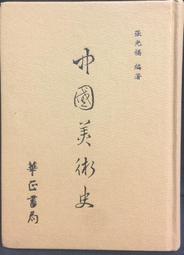 張光福 編著
中國美術史
華正書局